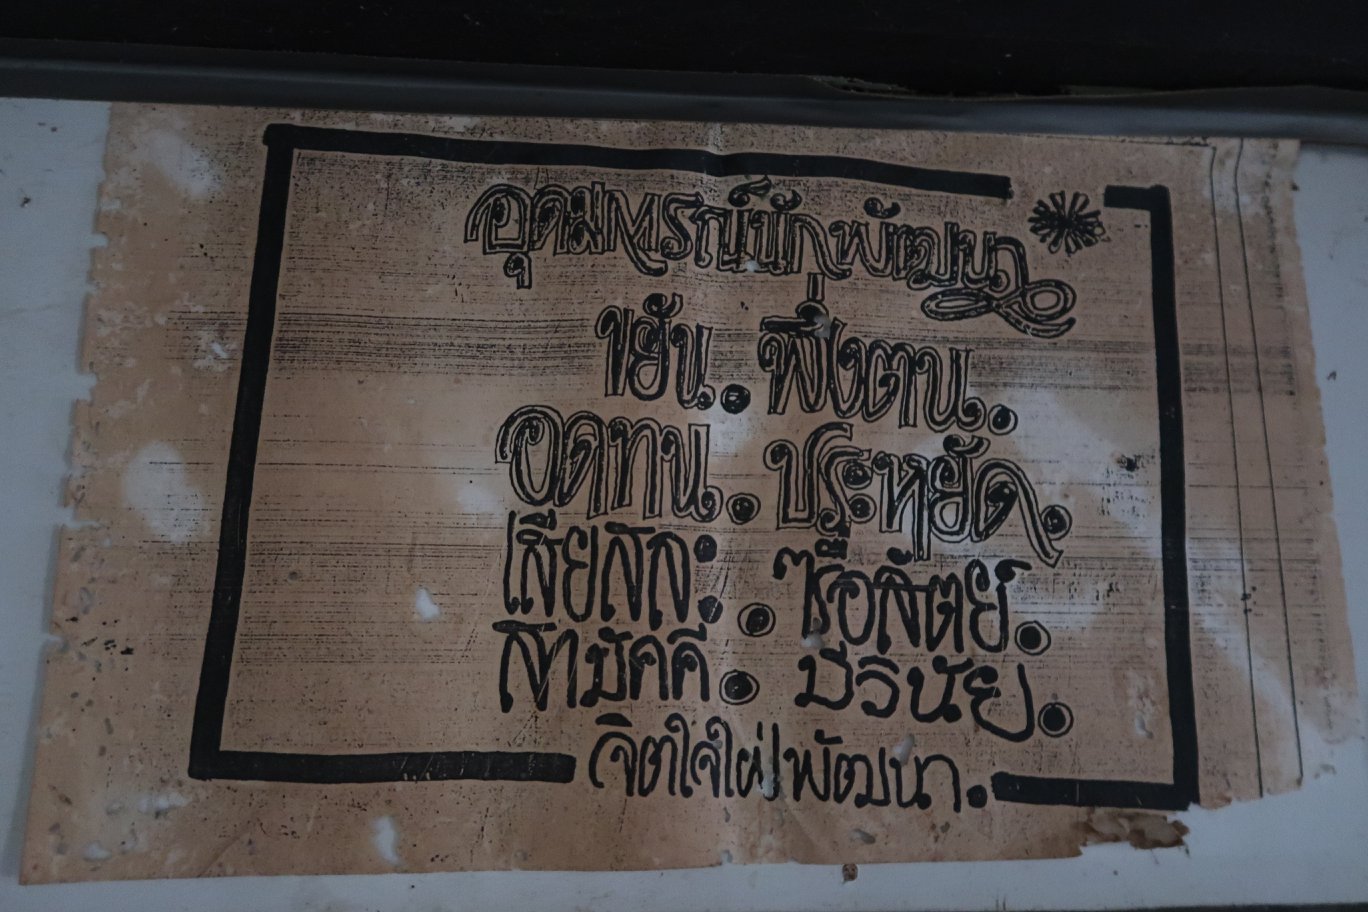 อุดมการณ์นักพัฒนา
ขยัน. พึ่งตน.
อดทน. ประหยัด.
เสียสละ. ซื่อสัตย์.
สามัคคี. มีวินัย.
จิตใจใฝ่พัฒนา.